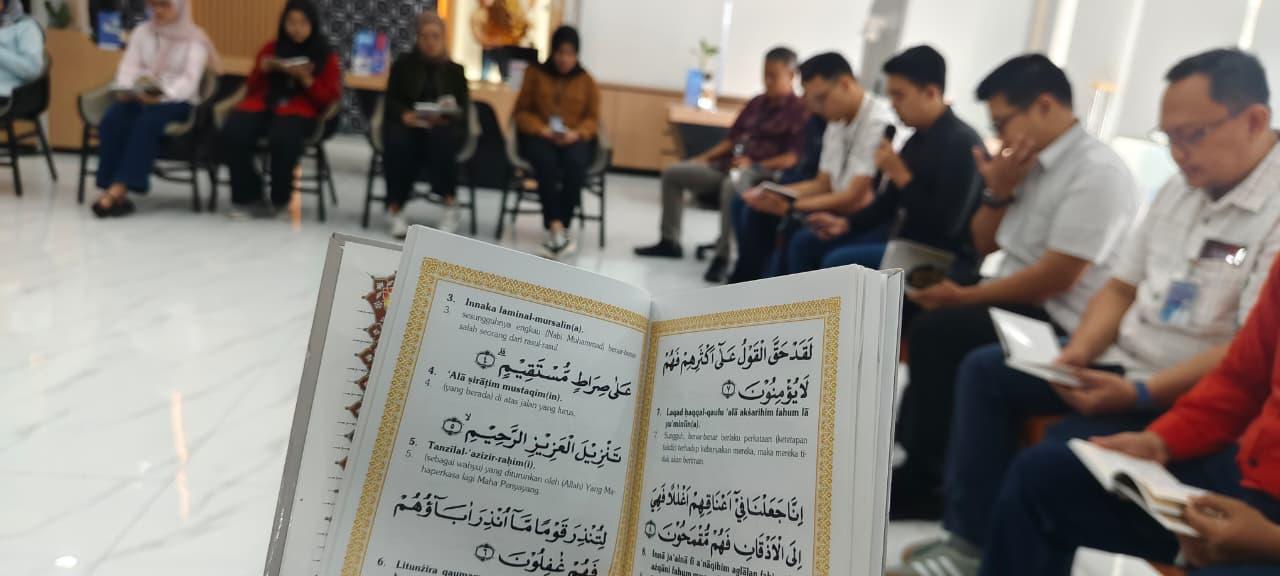 3. Innaka laminal-mursalin(a).
3. sesungguhnya engkau (Nabi Muhammad) benar-benar
salah seorang dari rasul-rasul
عَلٰى صِرَاطٍ مُّسْتَقِيْمٍۗ ٤
4. ‘Alā ṣirāṭim mustaqīm(in).
4. (yang berada) di atas jalan yang lurus,
تَنْزِيْلَ الْعَزِيْزِ الرَّحِيْمِۙ ٥
5. Tanzīlal-‘azīzir-raḥīm(i).
5. (sebagai wahyu) yang diturunkan oleh (Allah) Yang Ma-
haperkasa lagi Maha Penyayang,
لِتُنْذِرَ قَوْمًا مَّآ اُنْذِرَ اٰبَاۤؤُهُمْ
فَهُمْ غٰفِلُوْنَ ٦
6. Litunżira qauman
لَقَدْ حَقَّ الْقَوْلُ عَلٰٓى اَكْثَرِهِمْ فَهُمْ
لَا يُؤْمِنُوْنَ ٧
7. Laqad ḥaqqal-qaulu ‘alā akṡarihim fahum lā
yu'minūn(a).
7. Sungguh, benar-benar berlaku perkataan (ketetapan
takdir) terhadap kebanyakan mereka, maka mereka ti-
dak akan beriman.
اِنَّا جَعَلْنَا فِيْٓ اَعْنَاقِهِمْ اَغْلٰلًا فَهِيَ
اِلَى الْاَذْقَانِ فَهُمْ مُّقْمَحُوْنَ ٨
8. Innā ja‘alnā fī a‘nāqihim aglālan fahiya
ażqāni fahum